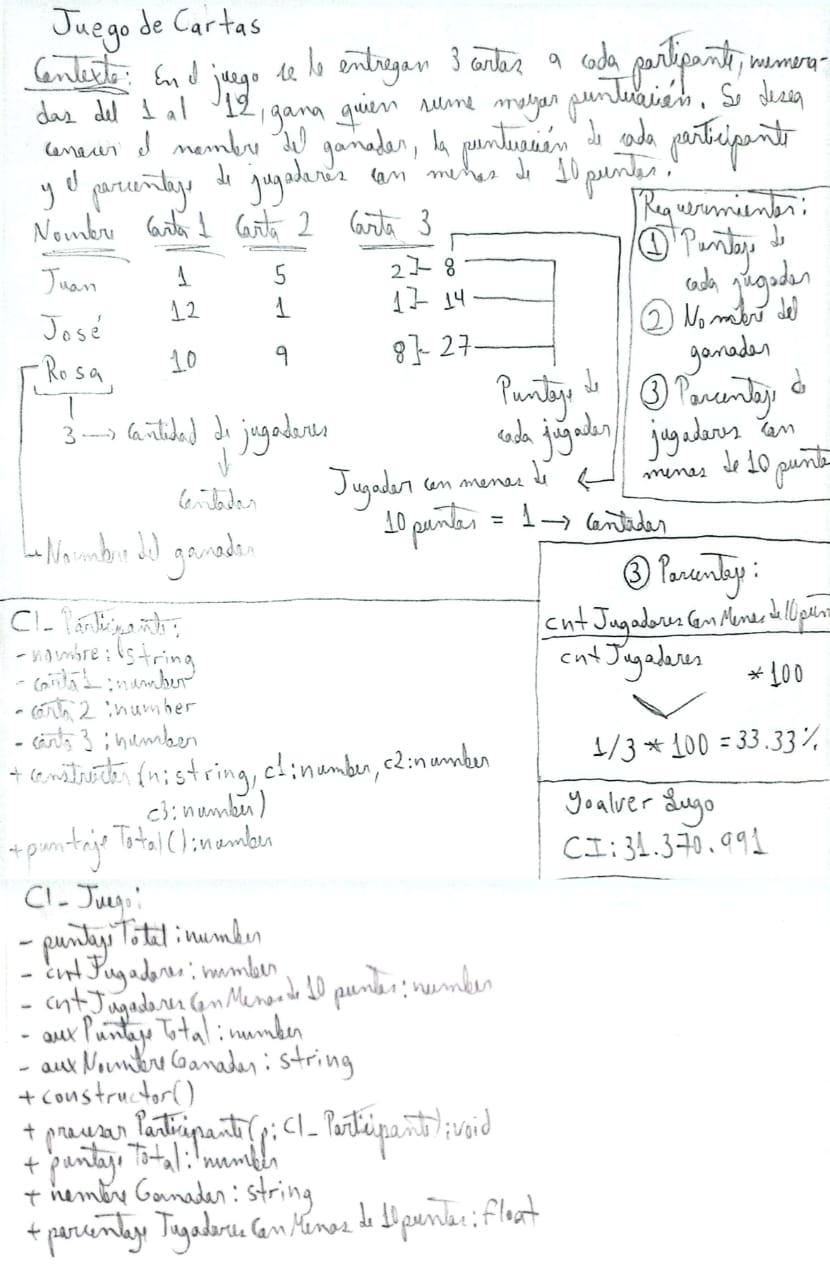 Juego de Cartas
Contexto: En el juego se le entregan 3 cartas a cada partipante, numera-
das del 1 al 12, gana quien sume mayor puntuación. Se desea
conocer el nombre del ganador, la puntuación de cada participante
y el porcentaje de jugadores con menos de 10 puntos.
Nombre Carta 1 Carta 2 Carta 3
Juan 1 5 2]- 8
José 12 1 1]- 14
Rosa 10 9 8]- 27
Puntaje de
cada jugador
3 → Cantidad de jugadores
↓
Contador
Jugador con menos de
10 puntos = 1 → Contador
Nombre del ganador
Requerimientos:
① Puntaje de
cada jugador
② Nombre del
ganador
③ Porcentaje de
jugadores con
menos de 10 punto
③ Porcentaje:
cntJugadoresConMenosde10pun
cntJugadores
*100
1/3 * 100 = 33.33%
Yoalver Lugo
CI: 31.370.991
Cl_Participante:
- nombre: string
- carta1: number
- carta 2: number
- carta 3: number
+ constructor (n: string, c1: number, c2: number
c3: number)
+ puntajeTotal(): number
Cl_Juego:
- puntajeTotal: number
- cntJugadores: number
- cntJugadoresConMenosde10 puntos: number
- auxPuntajeTotal: number
- auxNombreGanador: string
+ constructor()
+ procesarParticipante(p: Cl_Participante): void
+ puntajeTotal: number
+ nombreGanador: string
+ porcentajeJugadoresConMenos de 10puntos: float